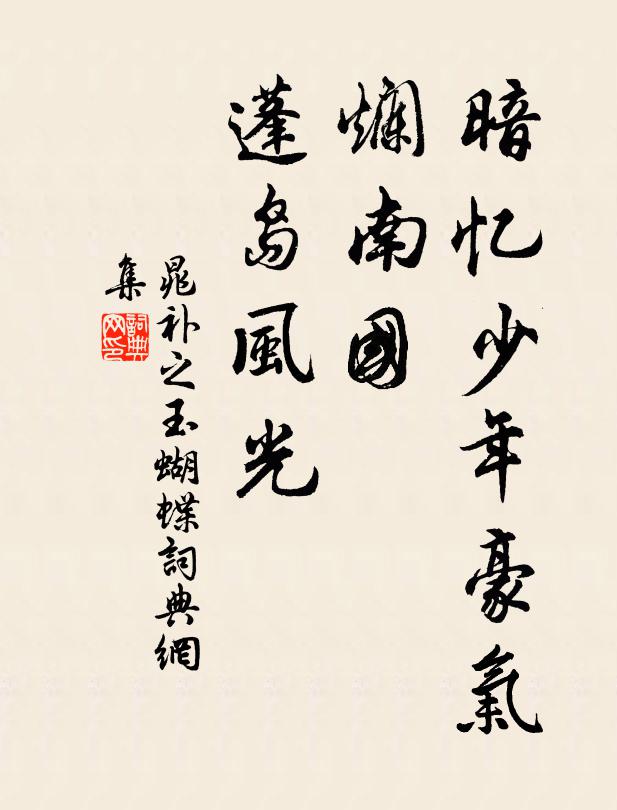 暗忆少年豪氣
爛南國
蓬島風光
晁补之玉蝴蝶詞典網
集
詞典
网印